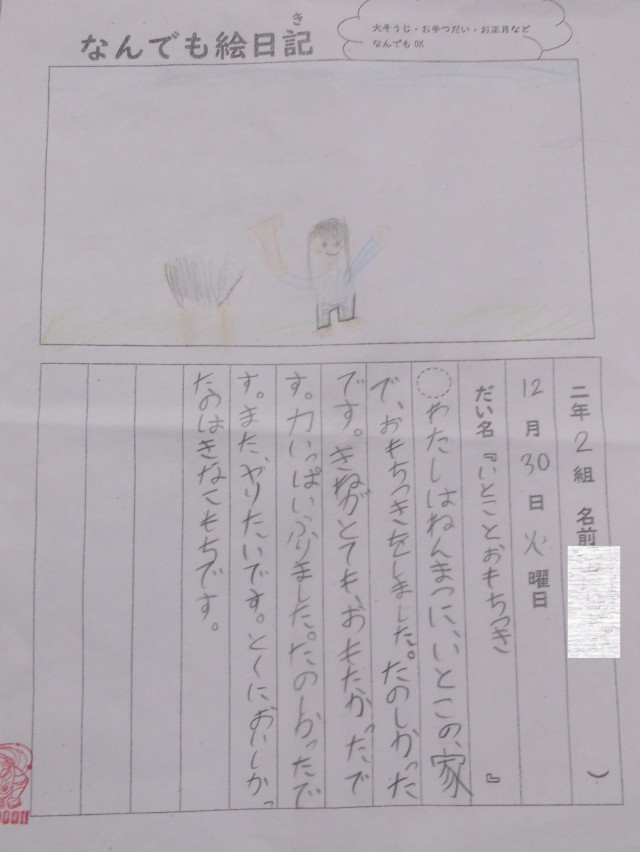 なんでも絵日記
き
大そうじ・お手つだい・お正月など
なんでもOK
二年2組 名前 )
12月30日火曜日
だい名『いとことおもちつき』
わたしはねんまつに、いとこの、家
で、おもちつきをしました。たのしかった
です。きねがとても、おもたかったで
す。力いっぱいふりました。たのしかったで
す。また、やりたいです。とくにおいしかっ
たのはきなこもちです。